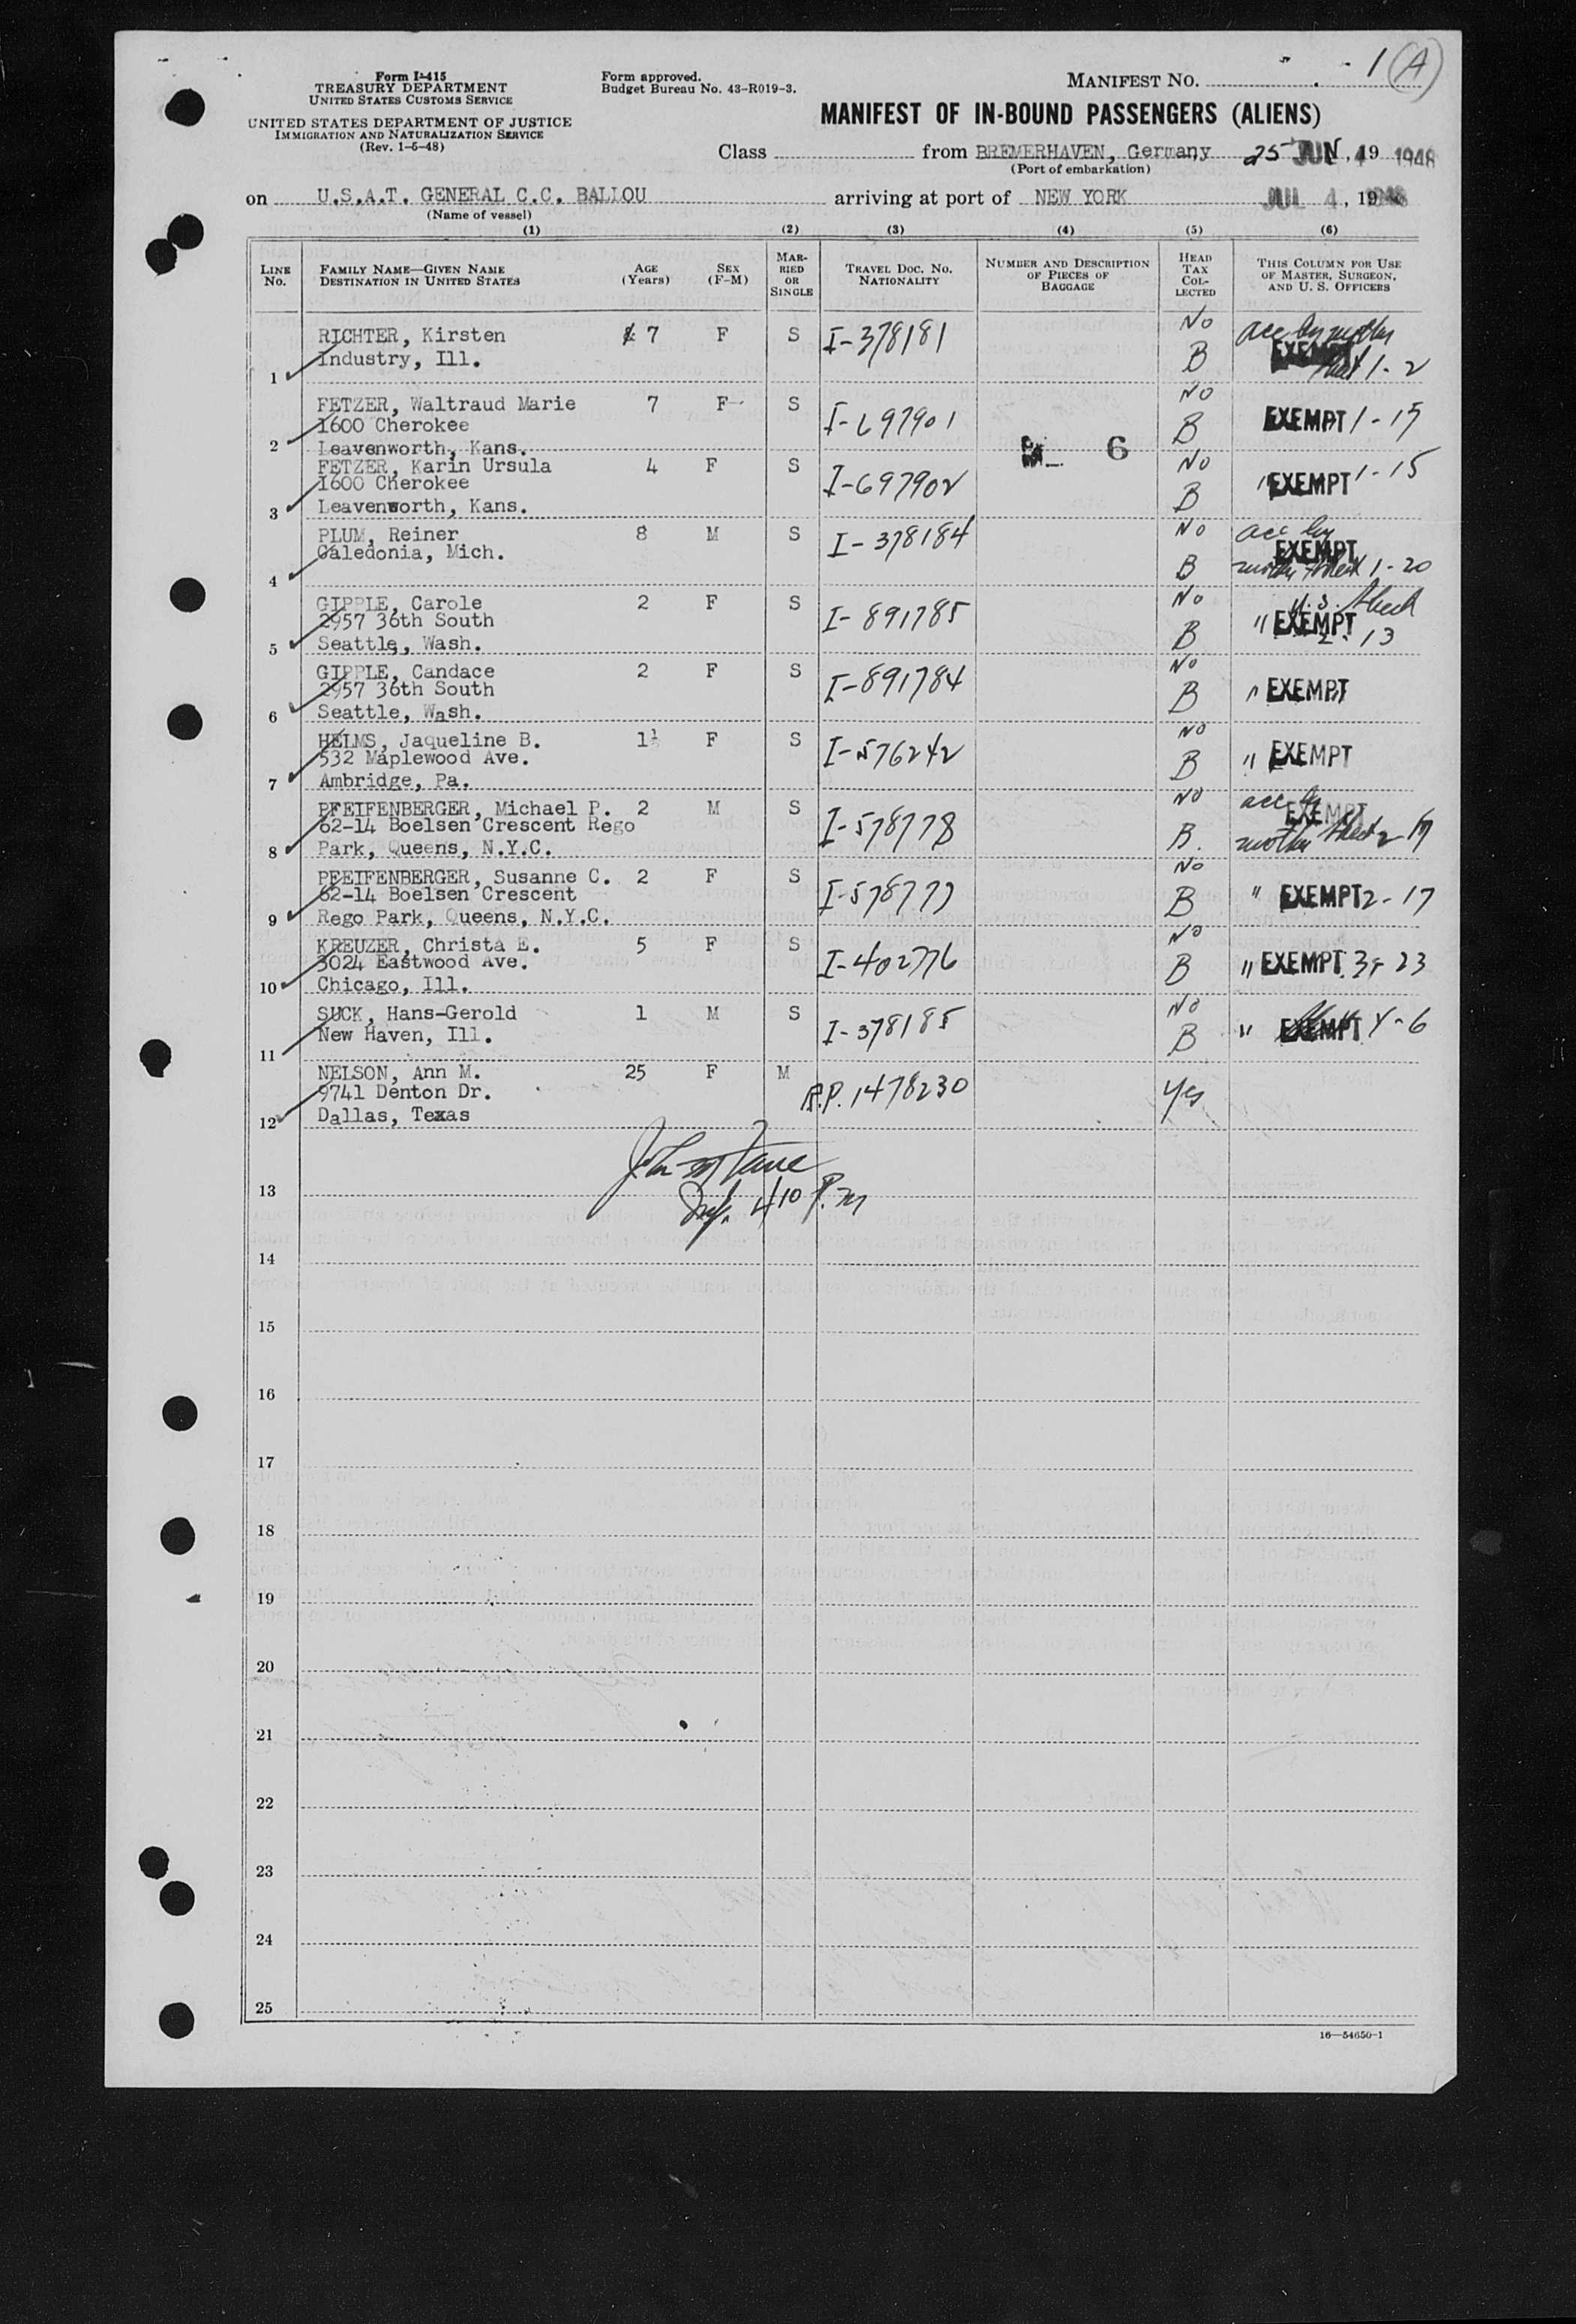 Form I-415
TREASURY DEPARTMENT
UNITED STATES CUSTOMS SERVICE
UNITED STATES DEPARTMENT OF JUSTICE
IMMIGRATION AND NATURALIZATION SERVICE
(Rev. 1-6-48)
Form approved.
Budget Bureau No. 43-R019-3.
MANIFEST NO. 1 (A)
MANIFEST OF IN-BOUND PASSENGERS (ALIENS)
Class from BREMERHAVEN, Germany 25 JUN, 19 1948
(Port of embarkation)
on U.S.A.T. GENERAL C.C. BALLOU arriving at port of NEW YORK JUL 4, 1948
(Name of vessel)
(1) (2) (3) (4) (5) (6)
LINE No. FAMILY NAME—GIVEN NAME DESTINATION IN UNITED STATES AGE (Years) SEX (F-M) MARRIED OR SINGLE TRAVEL DOC. NO. NATIONALITY NUMBER AND DESCRIPTION OF PIECES OF BAGGAGE HEAD TAX COLLECTED THIS COLUMN FOR USE OF MASTER, SURGEON, AND U. S. OFFICERS
RICHTER, Kirsten 7 F S I-378181 No acc by mother
Industry, Ill. B EXEMPT 1-2
1
FETZER, Waltraud Marie 7 F S I-697901 No
1600 Cherokee B EXEMPT 1-15
2 Leavenworth, Kans.
6
FETZER, Karin Ursula 4 F S I-697902 No
1600 Cherokee " EXEMPT 1-15
3 Leavenworth, Kans. B
PLUM, Reiner 8 M S I-378184 No acc by
Caledonia, Mich. EXEMPT
4 B mother sheet 1-20
GIPPLE, Carole 2 F S I-891785 No U.S. sheet
2957 36th South " EXEMPT
5 Seattle, Wash. B 2-13
GIPPLE, Candace 2 F S I-891784 No
2957 36th South B " EXEMPT
6 Seattle, Wash.
HELMS, Jaqueline B. 1½ F S I-576242 No
532 Maplewood Ave. B " EXEMPT
7 Ambridge, Pa.
PFEIFENBERGER, Michael P. 2 M S I-578778 No acc by
62-14 Boelsen Crescent Rego EXEMPT
8 Park, Queens, N.Y.C. B. mother sheet 2-17
PFEIFENBERGER, Susanne C. 2 F S I-578777 No
62-14 Boelsen Crescent B " EXEMPT 2-17
9 Rego Park, Queens, N.Y.C.
KREUZER, Christa E. 5 F S I-402776 No
3024 Eastwood Ave. B " EXEMPT 3-23
10 Chicago, Ill.
SUCK, Hans-Gerold 1 M S I-378185 No
New Haven, Ill. B " EXEMPT 4-6
11
NELSON, Ann M. 25 F M R.P. 1478230 Yes
9741 Denton Dr.
12 Dallas, Texas
13
Insp. 410 P.M
14
15
16
17
18
19
20
21
22
23
24
25
16—54650-1